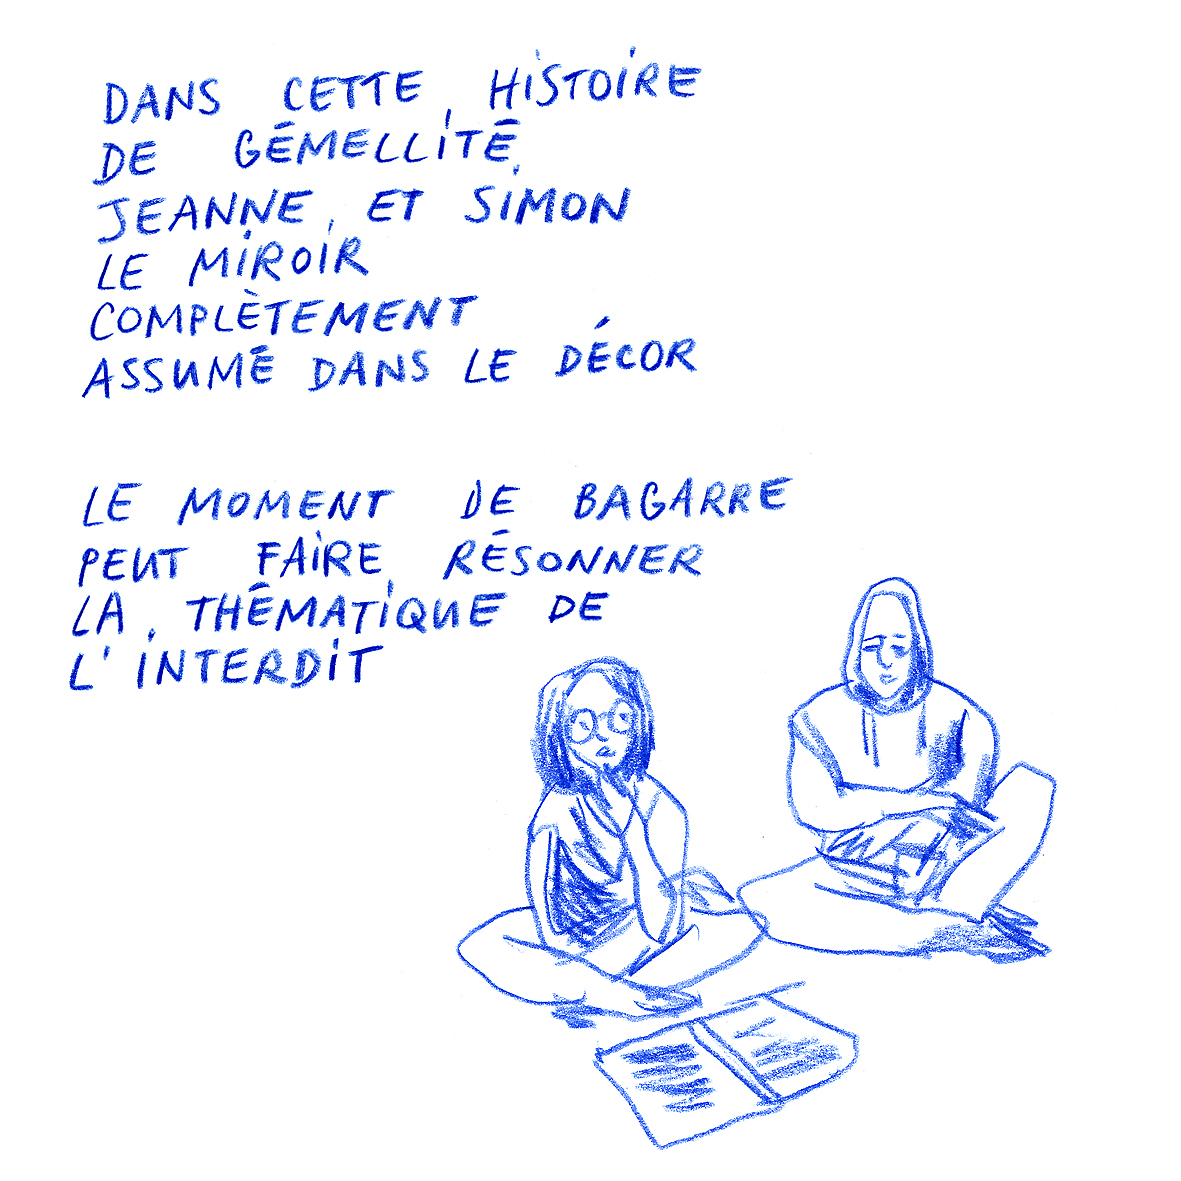 DANS CETTE HISTOIRE
DE GÉMELLITÉ,
JEANNE, ET SIMON
LE MIROIR
COMPLÈTEMENT
ASSUMÉ DANS LE DÉCOR
LE MOMENT DE BAGARRE
PEUT FAIRE RÉSONNER
LA THÉMATIQUE DE
L'INTERDIT